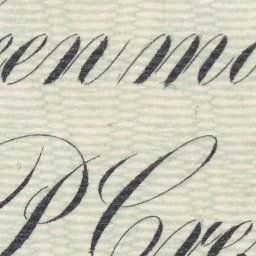 een mo
P Cre